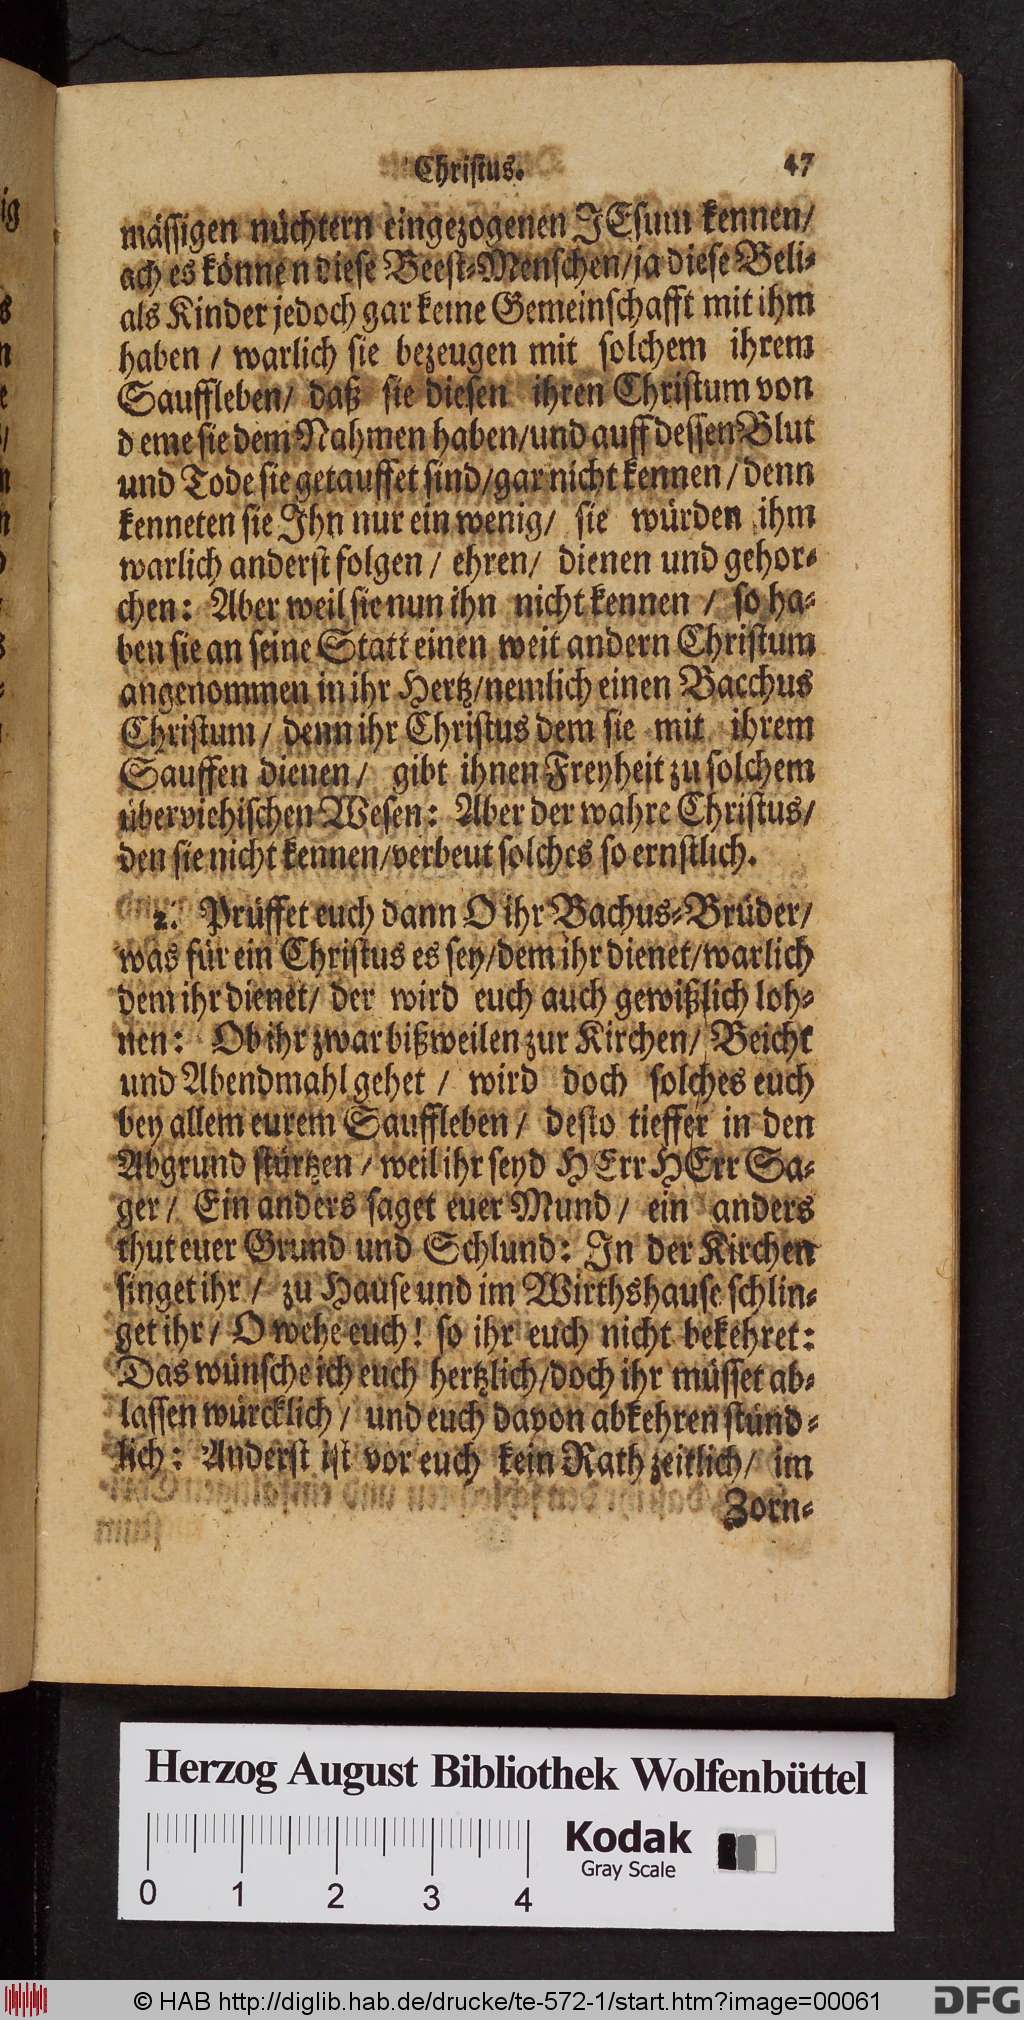 Christus. 47
mässigen nüchtern eingezogenen JEsum kennen/
ach es können diese Beest-Menschen/ja diese Beli-
als Kinder jedoch gar keine Gemeinschafft mit ihm
haben / warlich sie bezeugen mit solchem ihrem
Sauffleben/ daß sie diesen ihren Christum von
deme sie dem Nahmen haben/und auff dessen Blut
und Tode sie getauffet sind/gar nicht kennen / denn
kenneten sie Ihn nur ein wenig/ sie würden ihm
warlich anderst folgen / ehren/ dienen und gehor-
chen: Aber weil sie nun ihn nicht kennen / so ha-
ben sie an seine Statt einen weit andern Christum
angenommen in ihr Hertz/nemlich einen Bacchus
Christum / denn ihr Christus dem sie mit ihrem
Sauffen dienen/ gibt ihnen Freyheit zu solchem
überviehischen Wesen: Aber der wahre Christus/
den sie nicht kennen/verbeut solches so ernstlich.
2. Prüffet euch dann O ihr Bachus-Brüder/
was für ein Christus es sey/dem ihr dienet/warlich
dem ihr dienet/ der wird euch auch gewißlich loh-
nen: Ob ihr zwar bißweilen zur Kirchen/ Beicht
und Abendmahl gehet / wird doch solches euch
bey allem eurem Sauffleben/ desto tieffer in den
Abgrund stürtzen / weil ihr seyd HErr HErr Sa-
ger/ Ein anders saget euer Mund/ ein anders
thut euer Grund und Schlund: In der Kirchen
singet ihr / zu Hause und im Wirthshause schlin-
get ihr/ O wehe euch! so ihr euch nicht bekehret:
Das wünsche ich euch hertzlich/doch ihr müsset ab-
lassen würcklich / und euch davon abkehren stünd-
lich: Anderst ist vor euch kein Rath zeitlich/ im
Zorn-
Herzog August Bibliothek Wolfenbüttel
Kodak
Gray Scale
0 1 2 3 4
© HAB http://diglib.hab.de/drucke/te-572-1/start.htm?image=00061
DFG